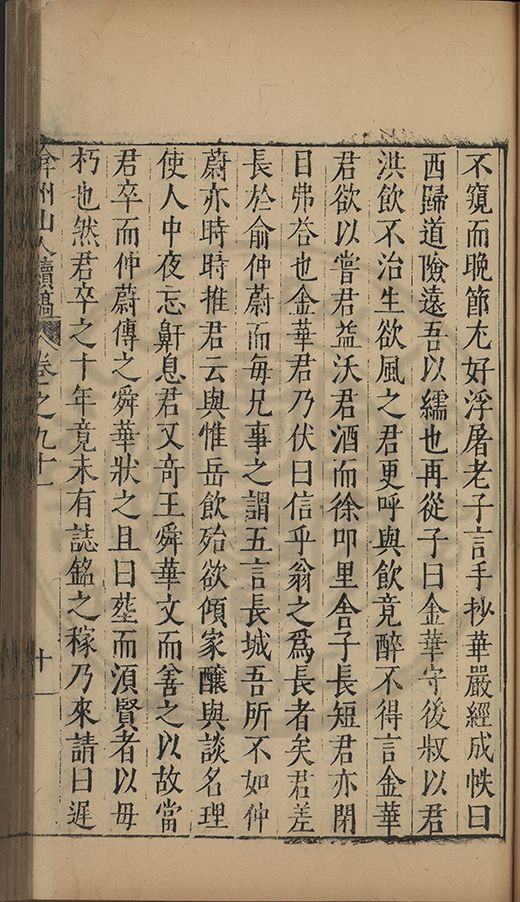 不窺而晚節尤好浮屠老子言手抄華嚴經成帙曰
西歸道險遠吾以繻也再從子曰金華守後叔以君
洪飲不治生欲風之君更呼與飲竟醉不得言金華
君欲以嘗君益沃君酒而徐叩里舍子長短君亦閉
目弗荅也金華君乃伏曰信乎翁之爲長者矣君差
長於俞仲蔚而每兄事之謂五言長城吾所不如仲
蔚亦時時推君云與惟岳飲殆欲傾家釀與談名理
使人中夜忘鼾息君又竒王舜華文而善之以故當
君卒而仲蔚傳之舜華狀之且曰塟而湏賢者以毋
朽也然君卒之十年竟未有誌銘之稼乃來請曰遲
弇州山人續稿 卷之九十一 十一